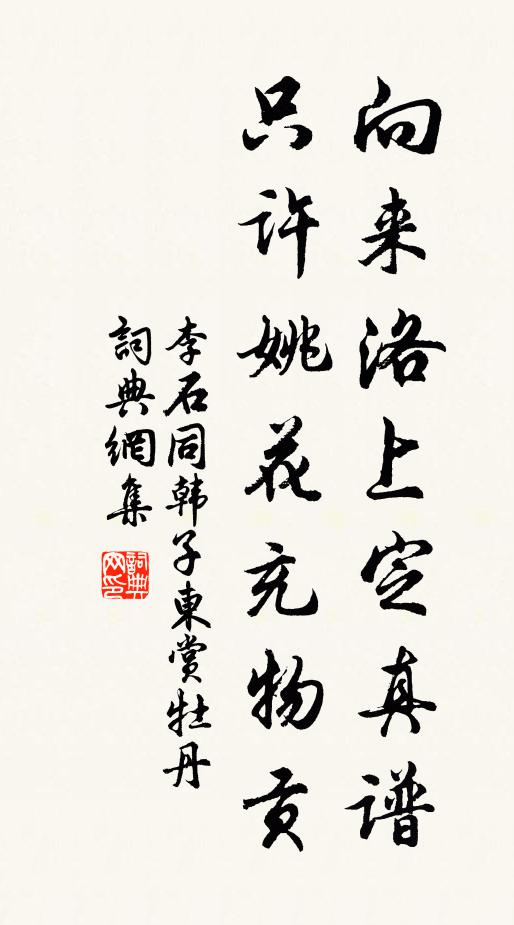 向来洛上定真谱
只许姚花充物贡
李石同韩子東赏牡丹
詞典網集
詞典網印